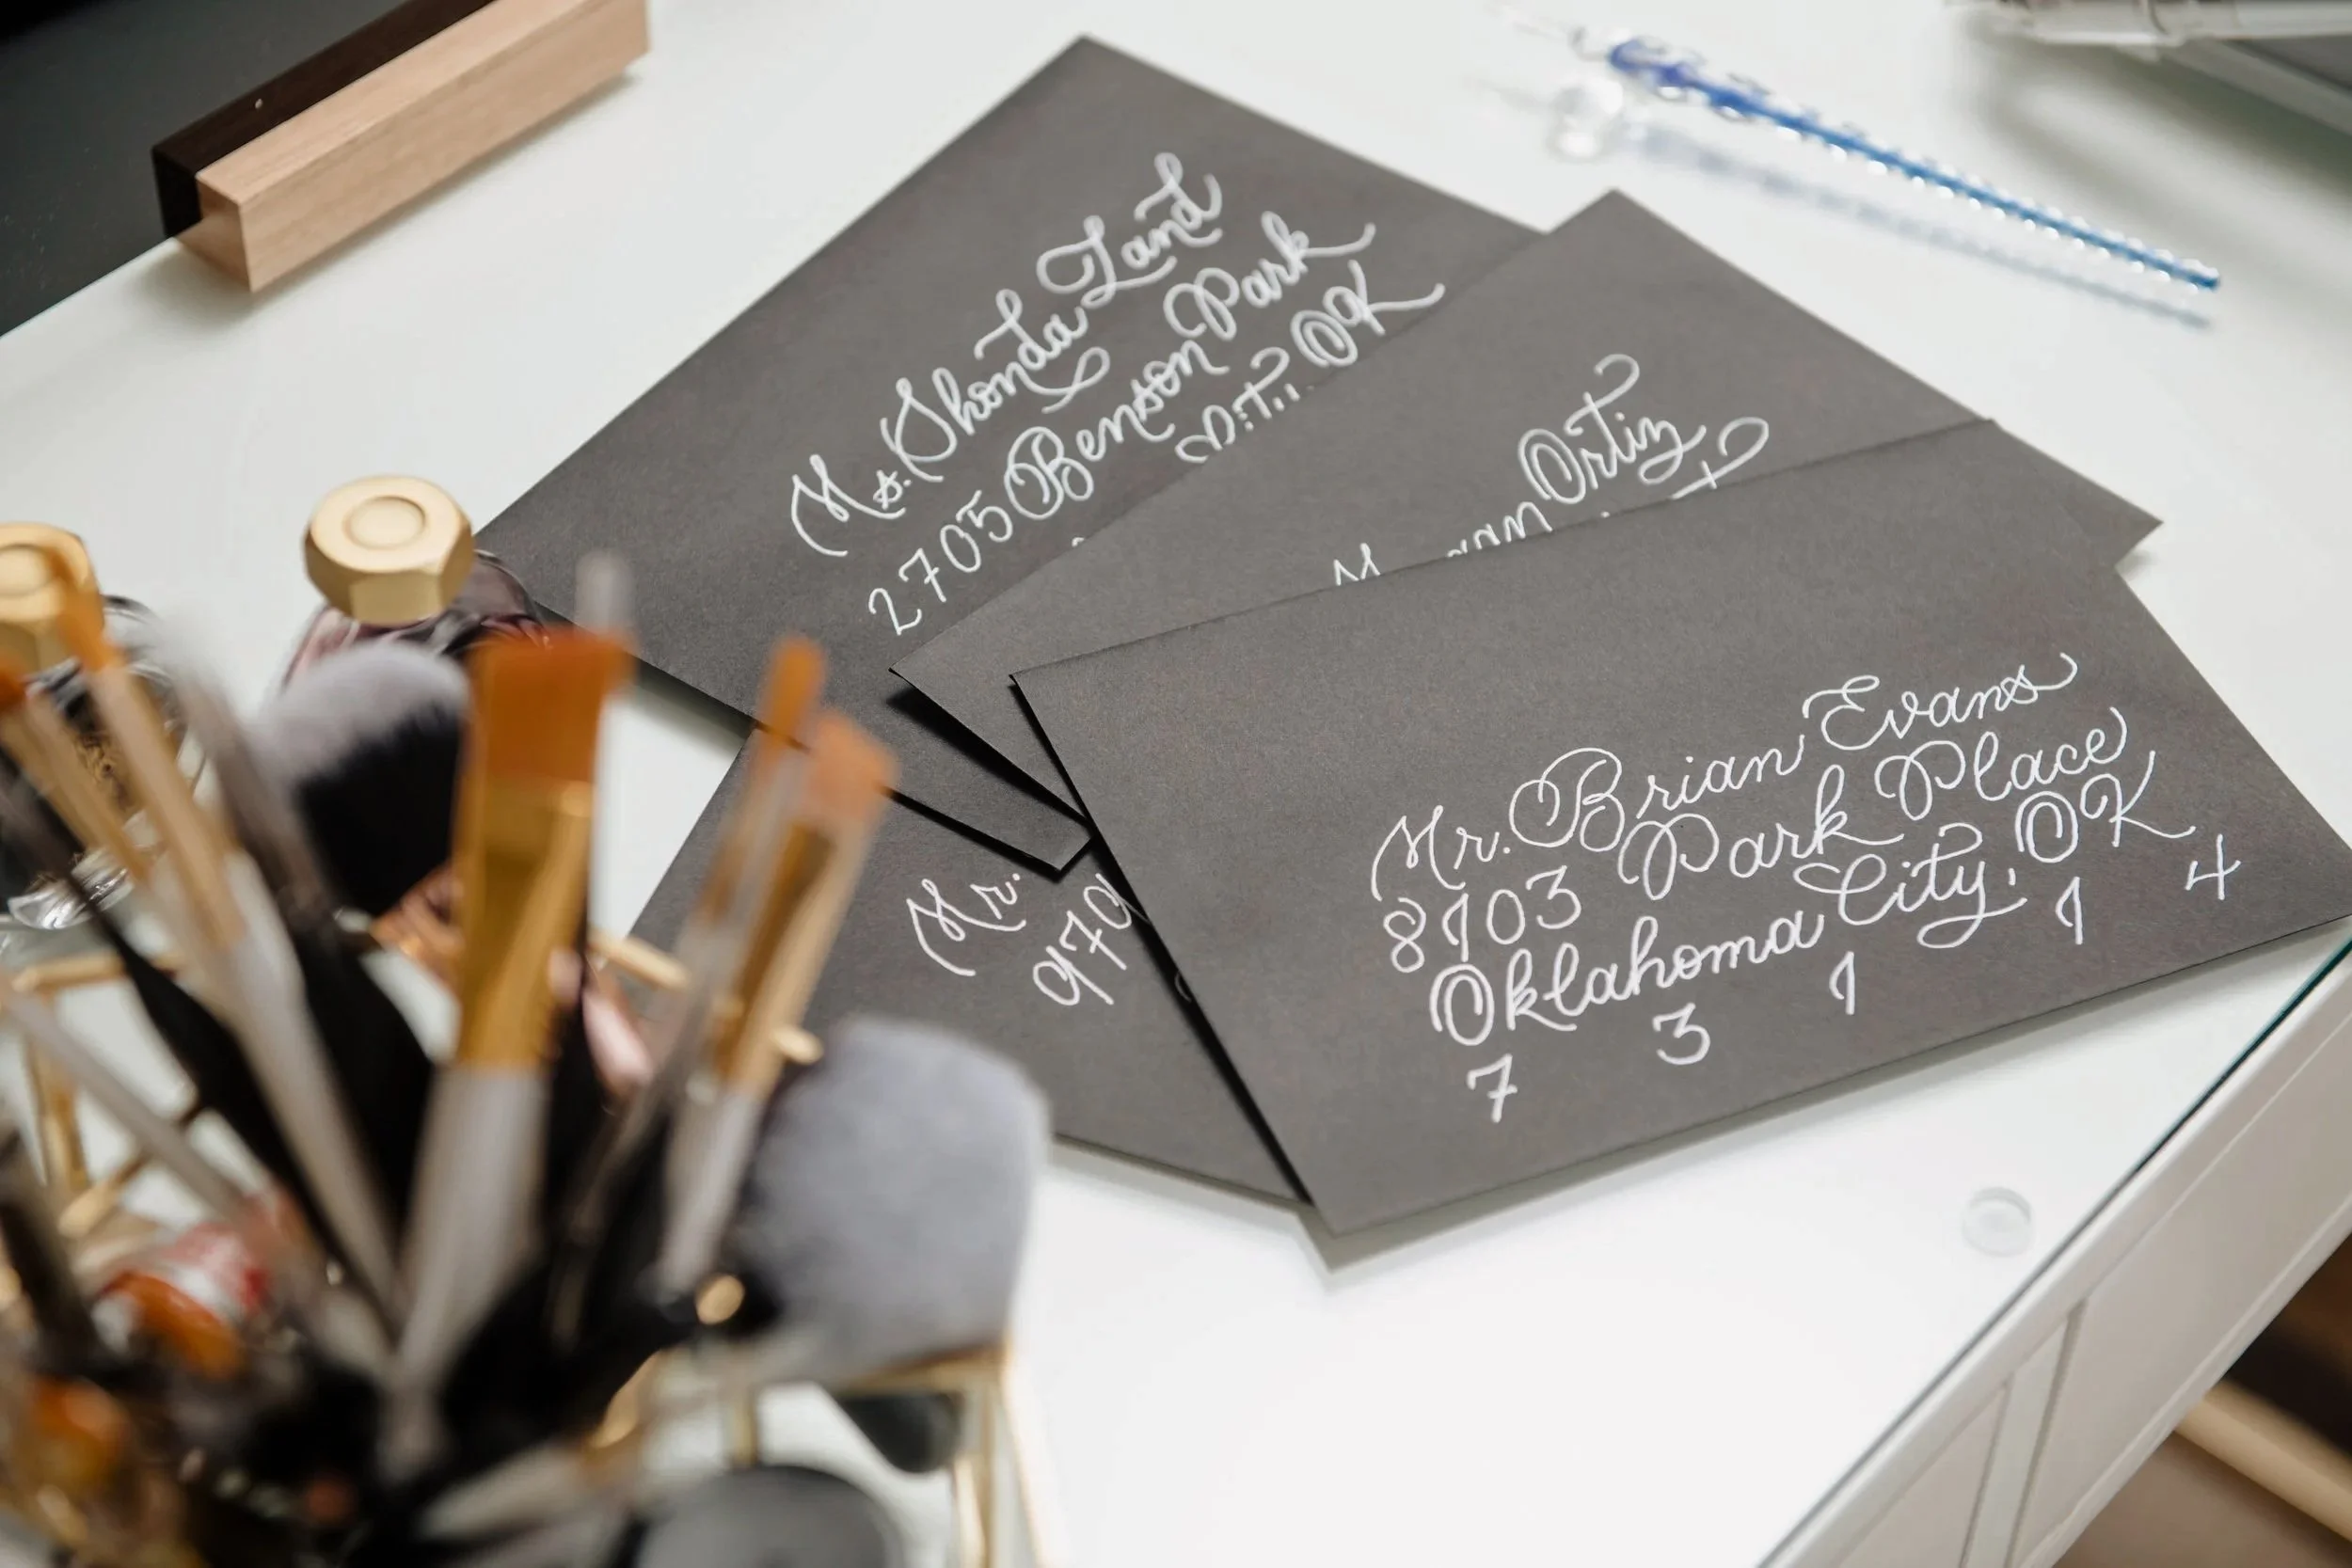 Ms. Shonda Land
2705 Benson Park
OK
Ortiz
Mr.
970
Mr. Brian Evans
8103 Park Place
Oklahoma City, OK
7 3 1 1 4